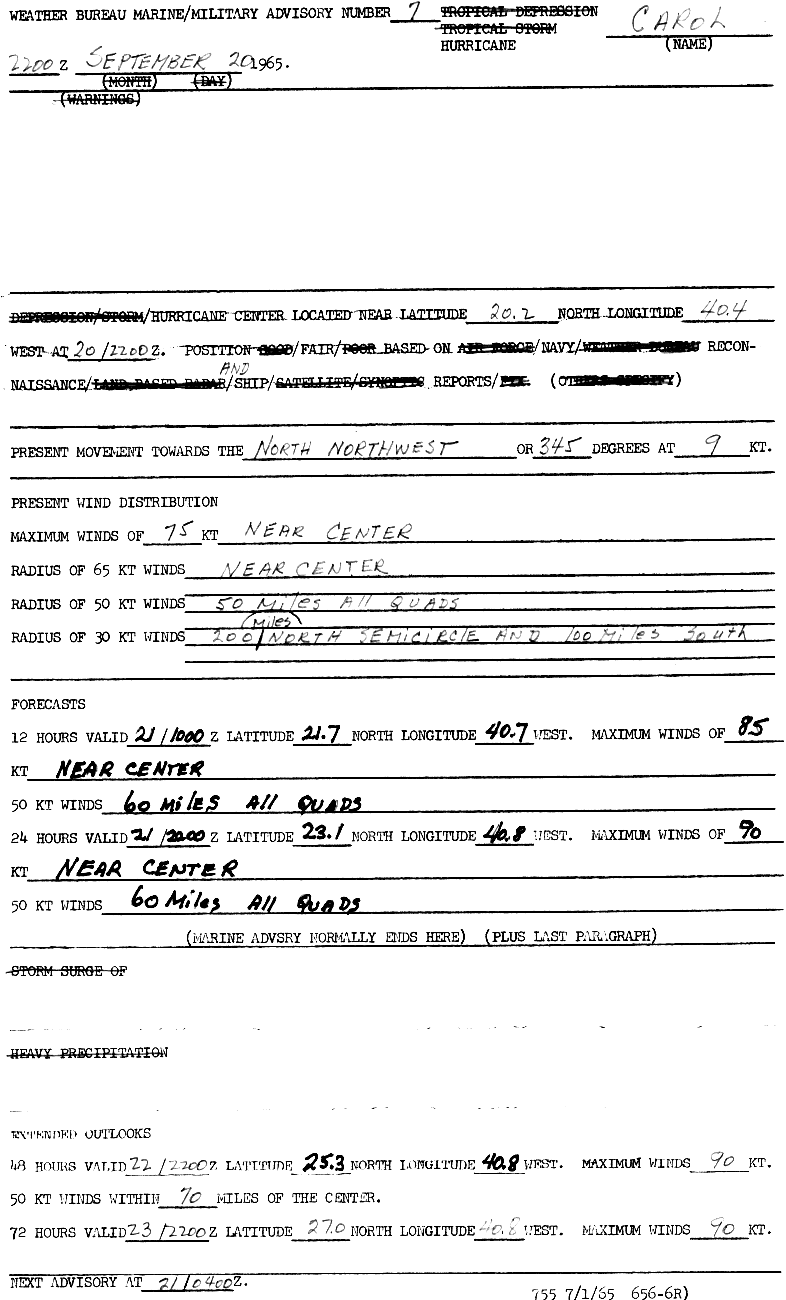 WEATHER BUREAU MARINE/MILITARY ADVISORY NUMBER 7 TROPICAL DEPRESSION CAROL
TROPICAL STORM
HURRICANE (NAME)
2200 Z SEPTEMBER 20 1965.
(MONTH) (DAY)
(WARNINGS)
DEPRESSION/STORM/HURRICANE CENTER LOCATED NEAR LATITUDE 20.2 NORTH LONGITUDE 40.4
WEST AT 20/2200 Z. POSITION GOOD/FAIR/POOR BASED ON AIR FORCE/NAVY/WEATHER BUREAU RECON-
AND
NAISSANCE/LAND BASED RADAR/SHIP/SATELLITE/SYNOPTIC REPORTS/ETC. (OTHERS SPECIFY)
PRESENT MOVEMENT TOWARDS THE NORTH NORTHWEST OR 345 DEGREES AT 9 KT.
PRESENT WIND DISTRIBUTION
MAXIMUM WINDS OF 75 KT NEAR CENTER
RADIUS OF 65 KT WINDS NEAR CENTER
RADIUS OF 50 KT WINDS 50 Miles All QUADS
Miles
RADIUS OF 30 KT WINDS 200 NORTH SEMICIRCLE AND 100 Miles South
FORECASTS
12 HOURS VALID 21/1000 Z LATITUDE 21.7 NORTH LONGITUDE 40.7 WEST. MAXIMUM WINDS OF 85
KT NEAR CENTER
50 KT WINDS 60 Miles All QUADS
24 HOURS VALID 21/2200 Z LATITUDE 23.1 NORTH LONGITUDE 40.8 WEST. MAXIMUM WINDS OF 90
KT NEAR CENTER
50 KT WINDS 60 Miles All QUADS
(MARINE ADVSRY NORMALLY ENDS HERE) (PLUS LAST PARAGRAPH)
STORM SURGE OF
HEAVY PRECIPITATION
EXTENDED OUTLOOKS
48 HOURS VALID 22/2200Z LATITUDE 25.3 NORTH LONGITUDE 40.8 WEST. MAXIMUM WINDS 90 KT.
50 KT WINDS WITHIN 70 MILES OF THE CENTER.
72 HOURS VALID 23/2200Z LATITUDE 27.0 NORTH LONGITUDE 40.8 WEST. MAXIMUM WINDS 90 KT.
NEXT ADVISORY AT 21/0400Z.
755 7/1/65 656-6R)